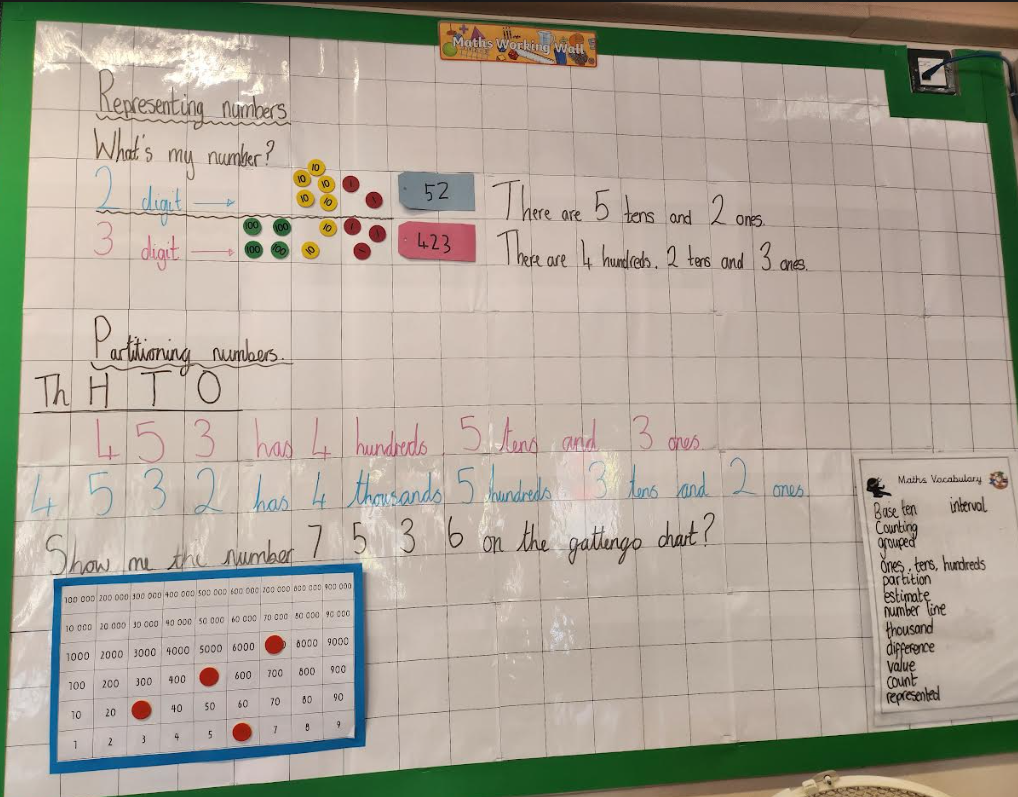 Maths Working Wall
Representing numbers
What's my number?
2 digit → 10 10 10 10 10 1 1 52 There are 5 tens and 2 ones.
3 digit → 100 100 100 100 10 10 1 1 1 423 There are 4 hundreds. 2 tens and 3 ones.
Partitioning numbers.
Th H T O
4 5 3 has 4 hundreds 5 tens and 3 ones.
4 5 3 2 has 4 thousands 5 hundreds 3 tens and 2 ones.
Show me the number 7 5 3 6 on the gattengo chart?
100 000 200 000 300 000 400 000 500 000 600 000 700 000 800 000 900 000
10 000 20 000 30 000 40 000 50 000 60 000 70 000 80 000 90 000
1000 2000 3000 4000 5000 6000 8000 9000
100 200 300 400 600 700 800 900
10 20 40 50 60 70 80 90
1 2 3 4 5 7 8 9
Maths Vocabulary
Base ten interval
Counting
grouped
ones, tens, hundreds
partition
estimate
number line
thousand
difference
value
count
represented